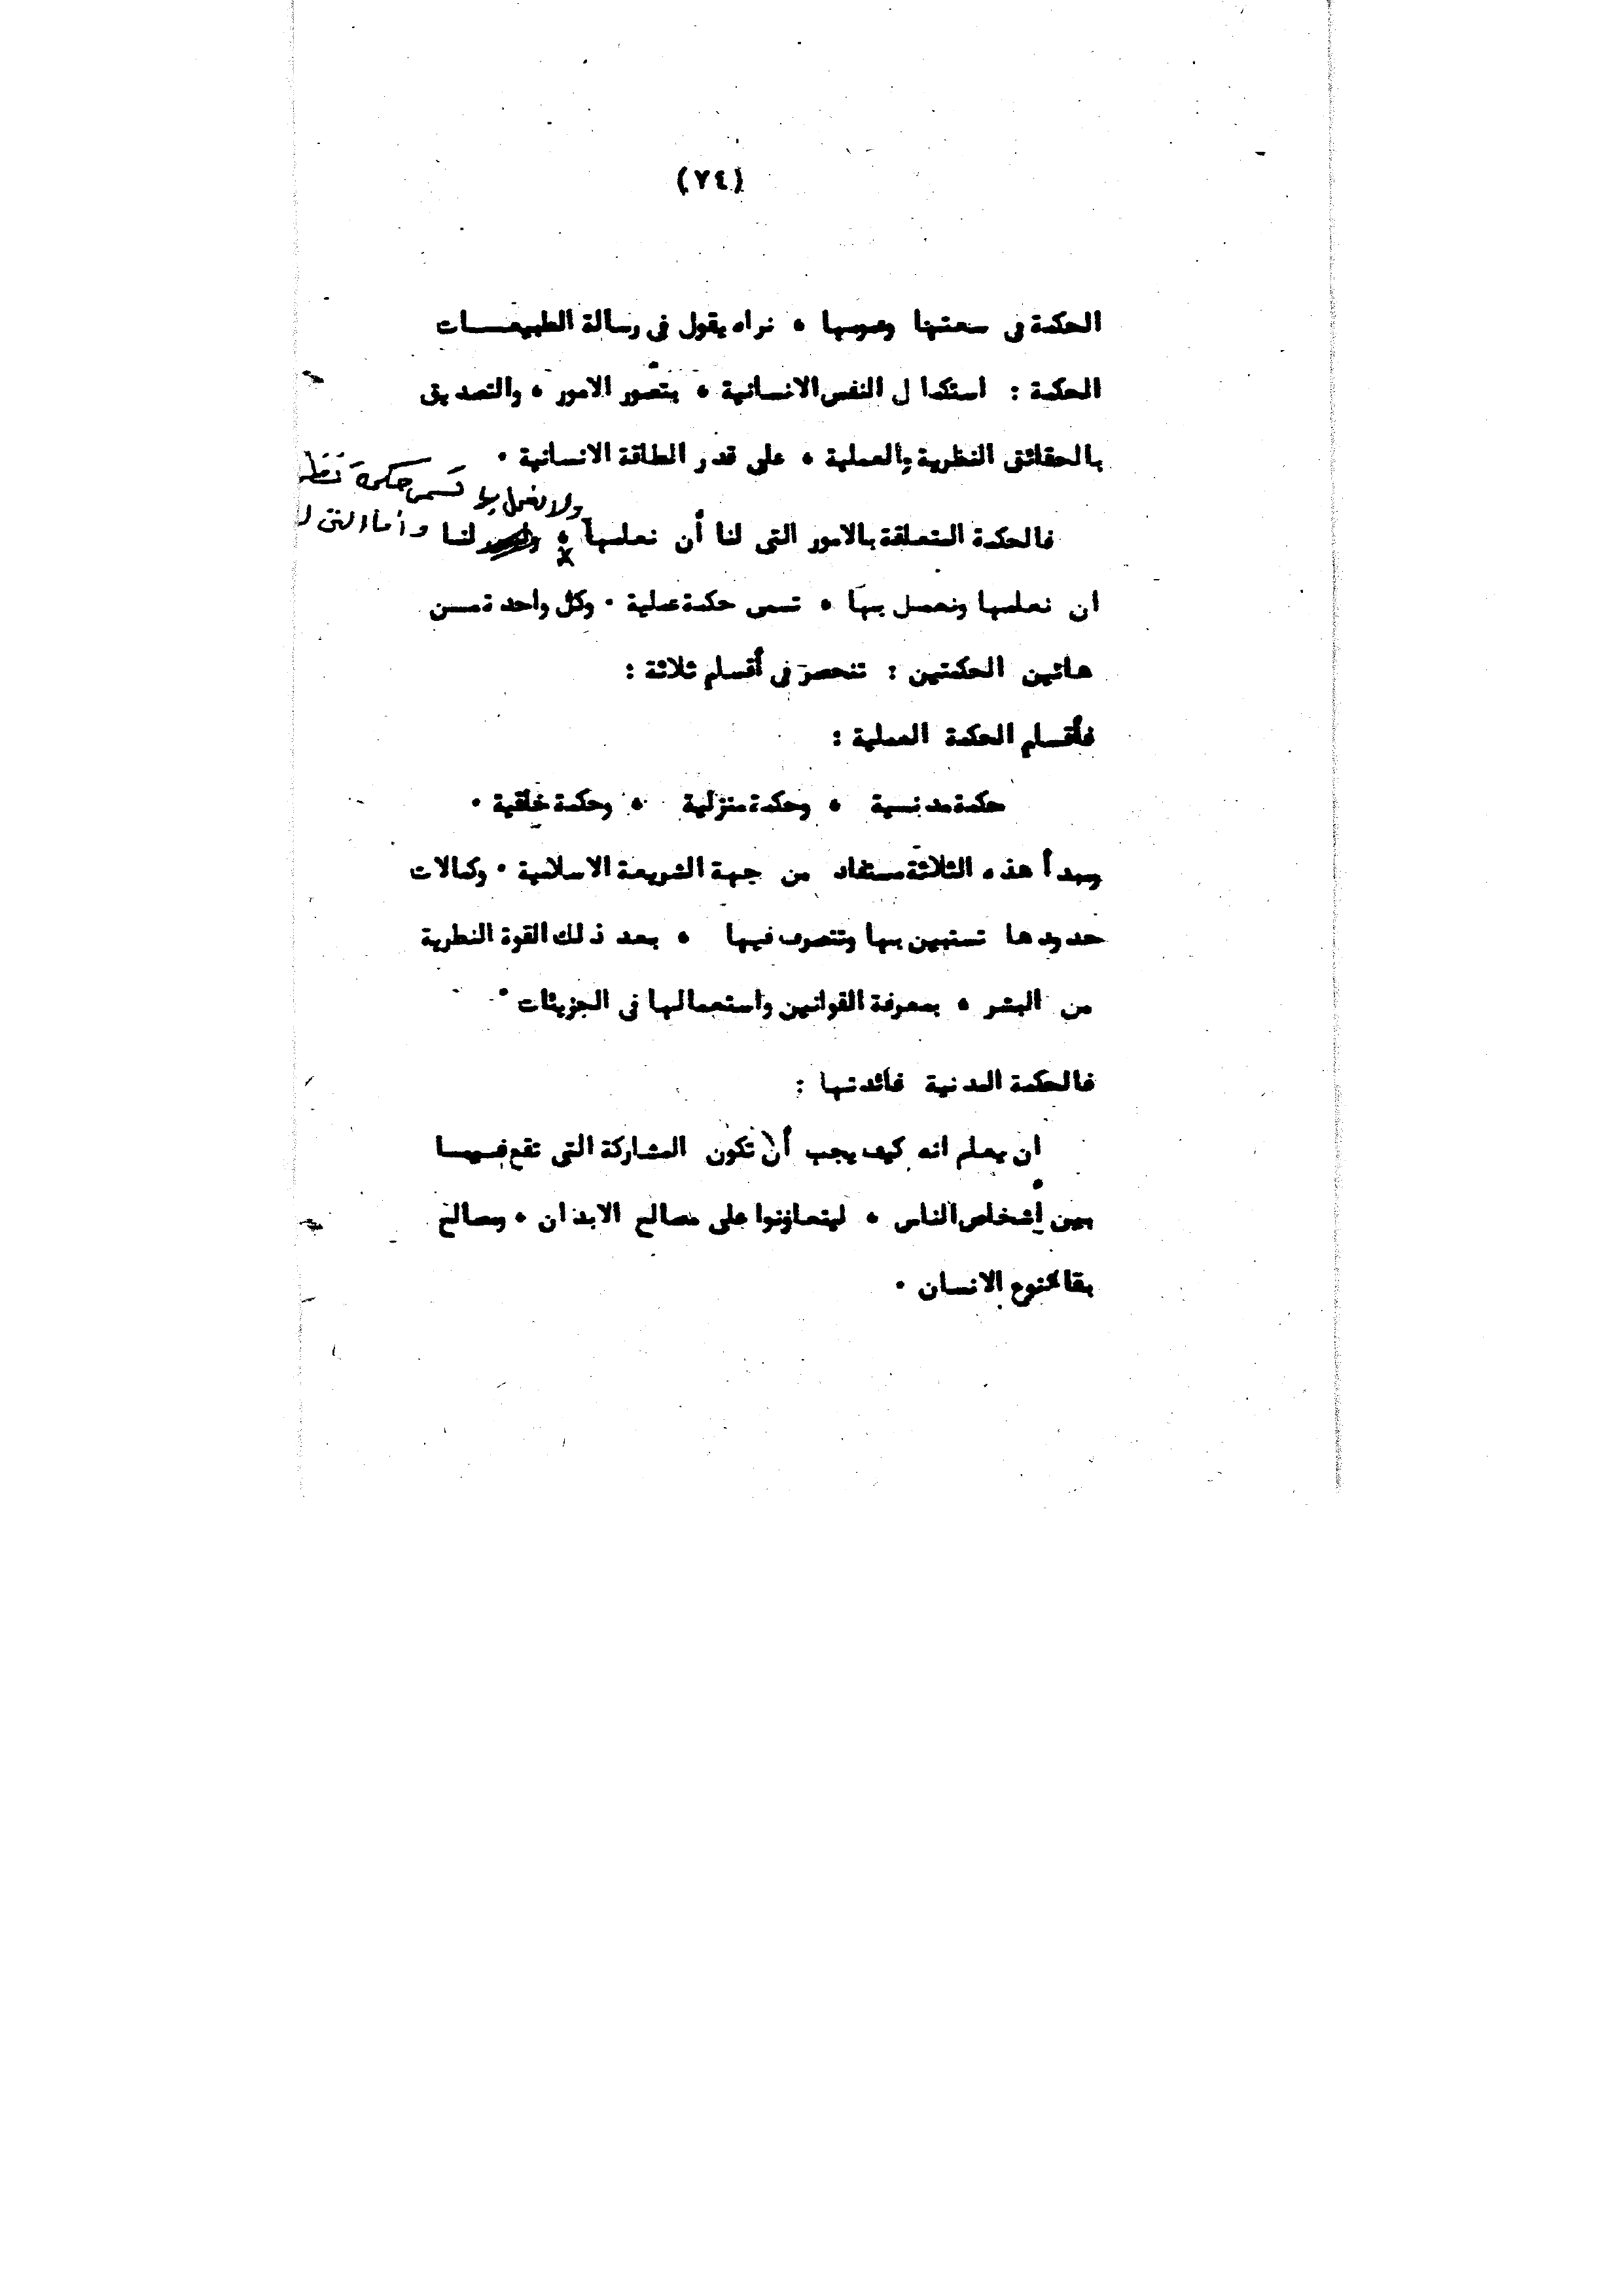 (٧٤)
الحكمة فى سعتها وعمومها ، نراه يقول فى رسالة الطبيعـــات
الحكمة : استكمال النفس الانسانية ، بتصور الامور ، والتصديق
بالحقائق النظرية والعملية ، على قدر الطاقة الانسانية ٠
ولا نعمل بها تسمى حكمة
فالحكمة المتعلقة بالامور التى لنا أن نعلمها ، لنا وأما التى
ان نعلمها ونعمل بها ، تسمى حكمة عملية ٠ وكل واحدة مــن
هاتين الحكمتين : تنحصر فى أقسام ثلاثة :
فأقسام الحكمة العملية :
حكمة مدنــية ، وحكمة منزلية ، وحكمة خلقية ٠
ومبدأ هذه الثلاثة مستفاد من جهة الشريعة الاسلامية ٠ وكمالات
حدودها تستبين بها وتتصرف فيها ، بعد ذلك القوة النطرية
من البشر ، بمعرفة القوانين واستعمالها فى الجزيئات ٠
فالحكمة المدنية فائدتها :
ان يعلم انه كيف يجب أن تكون المشاركة التى تقع فيــمــا
بين أشخاص الناس ، ليتعاونوا على مصالح الابدان ، ومصالح
بقاء نوع الانسان ٠